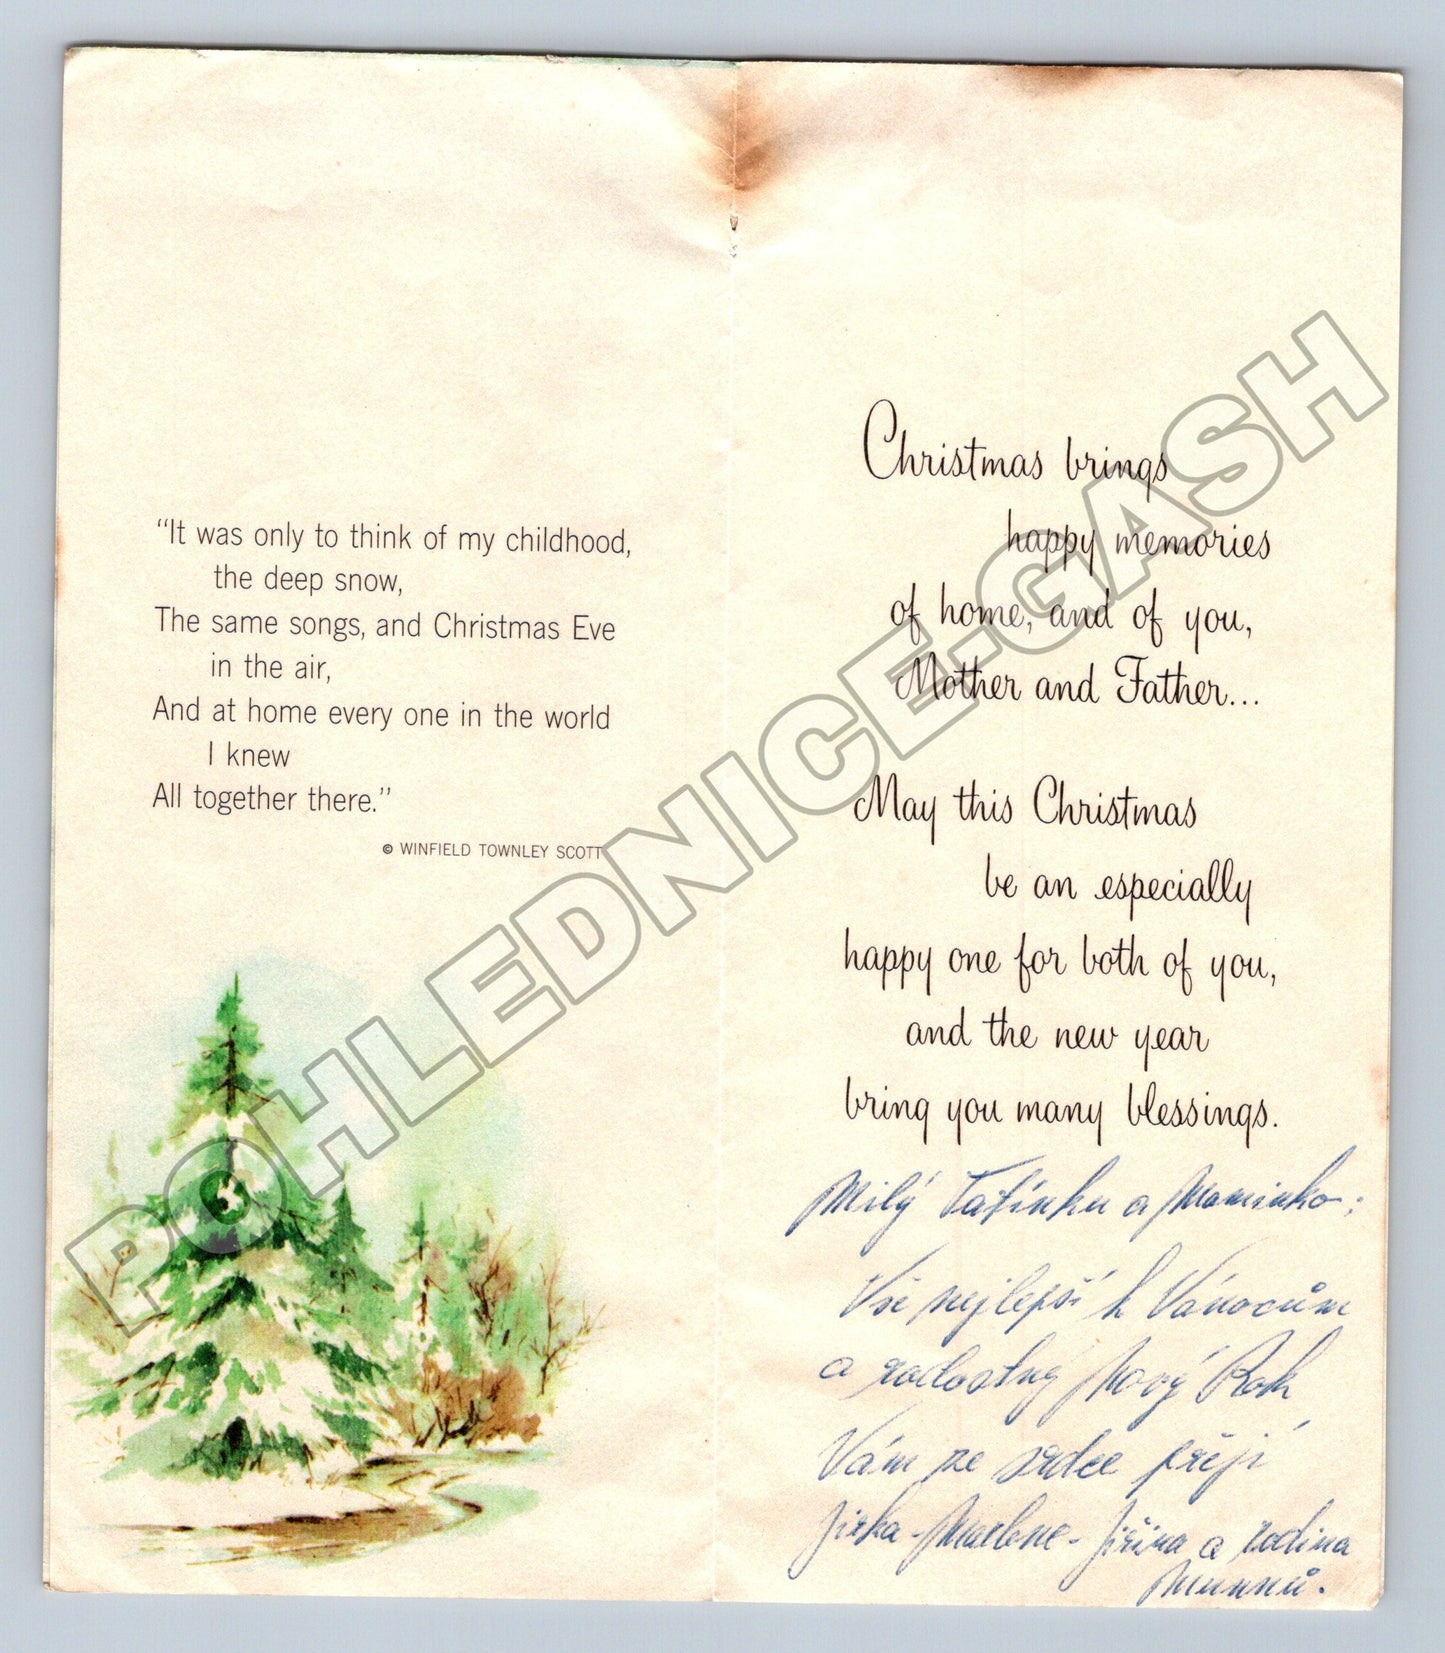 “It was only to think of my childhood,
the deep snow,
The same songs, and Christmas Eve
in the air,
And at home every one in the world
I knew
All together there.”
© WINFIELD TOWNLEY SCOTT
Christmas brings
happy memories
of home, and of you,
Mother and Father...
May this Christmas
be an especially
happy one for both of you,
and the new year
bring you many blessings.
Milý Tatínku a Maminko;
Vše nejlepší k Vánocům
a radostný Nový Rok
Vám ze srdce přejí
Jirka - Marlene - Jiřina a rodina
POHLEDNICE-GASH